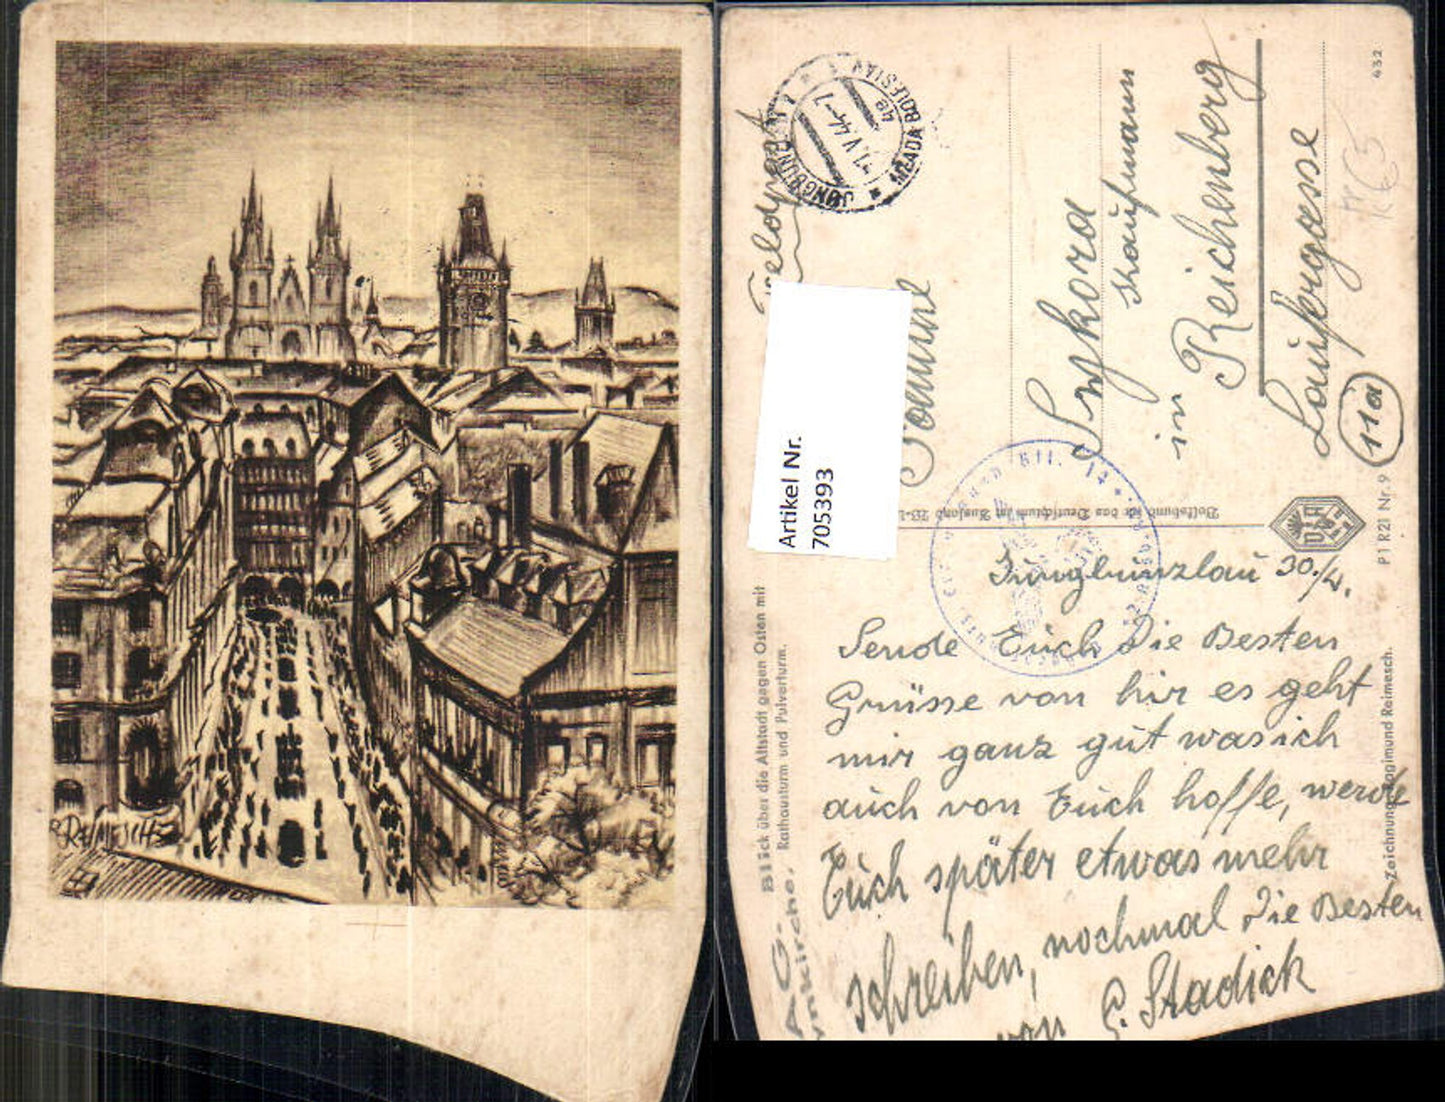 REIMESCH
Feldpost
JUNGBUNZLAU
MLADA BOLESLAV
1. V 44-7
Artikel Nr.
705393
Familie
Sykora
Kaufmann
in Reichenberg
Laufergasse
11a
632
P 1 R21 Nr. 9
Volksbund für das Deutschtum im Ausland
VDA
Blick über die Altstadt gegen Osten mit
Rathausturm und Pulverturm.
Zeichnung: Sagimund Reimesch.
Jungbunzlau 30./4.
Sende Euch die Besten
Grüsse von hir es geht
mir ganz gut was ich
auch von Euch hoffe, werde
Euch später etwas mehr
schreiben, nochmal die Besten
von G. Stadick